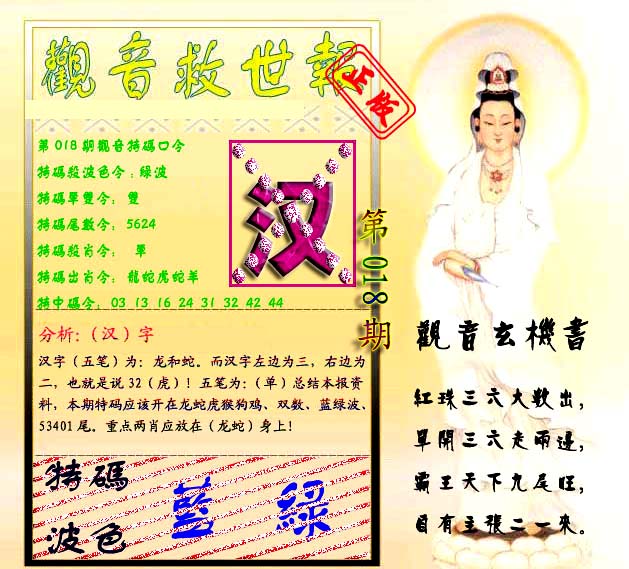 觀音救世報
正版
第018期觀音特碼口令
特碼殺波色令:綠波
特碼單雙令: 雙
特碼尾數令: 5624
特碼殺肖令: 單
特碼出肖令: 龍蛇虎蛇羊
特中碼令: 03 13 16 24 31 32 42 44
汉
第018期
分析:(汉)字
汉字(五笔)为:龙和蛇。而汉字左边为三,右边为
二,也就是说32(虎)!五笔为:(单)总结本报资
料,本期特码应该开在龙蛇虎猴狗鸡、双数、蓝绿波、
53401尾。重点两肖应放在(龙蛇)身上!
特碼
波色
藍 綠
觀音玄機書
紅珠三六大數出,
單開三六走兩邊,
霸王天下九尾旺,
自有主張二一來。